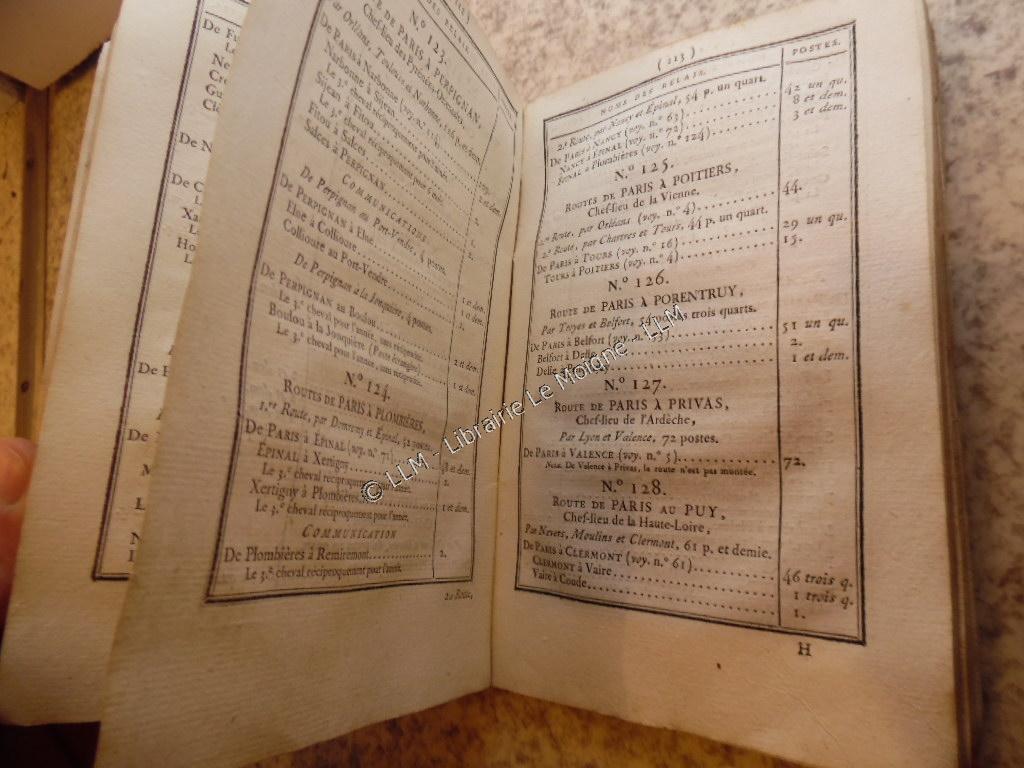 De N
De C
Xa
Ho
De
NOMS DES RELAIS.
N.º 123.
ROUTE DE PARIS À PERPIGNAN,
Chef-lieu des Pyrénées Orientales,
Par Orléans, Toulouse, Narbonne,
De PARIS à Narbonne (voy. n.º
Narbonne à
Le 3.e cheval réciproquement pour l'année.
à Fitou
Le 3.e cheval réciproquement pour 6 mois.
Fitou à Salces
Salces à PERPIGNAN
COMMUNICATIONS.
De Perpignan au Port-Vendre, 4 postes.
De PERPIGNAN à Elne
Elne à Collioure
Collioure au Port-Vendre
De Perpignan à la Jonquière, 4 postes.
De PERPIGNAN au Boulou
Le 3.e cheval pour l'année, sans réciprocité.
Boulou à la Jonquière (Poste étrangère)
Le 3.e cheval pour l'année, sans réciprocité.
1 et dem.
2 et dem.
1 et dem.
N.º 124.
ROUTES DE PARIS À PLOMBIÈRES,
1.re Route, par Domremy et Épinal, 52 postes.
De PARIS à ÉPINAL (voy. n.º 71)
8 et dem.
ÉPINAL à Xertigny
2.
Le 3.e cheval réciproquement pour l'année.
Xertigny à Plombières
1 et dem.
Le 3.e cheval réciproquement pour l'année.
COMMUNICATION
De Plombières à Remiremont 2.
Le 3.e cheval réciproquement pour l'année.
2.e Route,
(113)
NOMS DES RELAIS. POSTES.
2.e Route, par Nancy et Épinal, 54 p. un quart.
De PARIS à NANCY (voy. n.º 63) 42 un qu.
NANCY à ÉPINAL (voy. n.º 72) 8 et dem.
ÉPINAL à Plombières (voy. n.º 124) 3 et dem.
N.º 125.
ROUTES DE PARIS À POITIERS,
Chef-lieu de la Vienne.
1.re Route, par Orléans (voy. n.º 4) 44.
2.e Route, par Chartres et Tours, 44 p. un quart.
De PARIS à TOURS (voy. n.º 16) 29 un qu.
TOURS à POITIERS (voy. n.º 4) 15.
N.º 126.
ROUTE DE PARIS À PORENTRUY,
Par Troyes et Belfort, 54 postes trois quarts.
De PARIS à Belfort (voy. n.º 51 un qu.
Belfort à Delle 2.
Delle à 1 et dem.
N.º 127.
ROUTE DE PARIS À PRIVAS,
Chef-lieu de l'Ardèche,
Par Lyon et Valence, 72 postes.
De PARIS à VALENCE (voy. n.º 5) 72.
Nota. De Valence à Privas, la route n'est pas montée.
N.º 128.
ROUTE DE PARIS AU PUY,
Chef-lieu de la Haute-Loire,
Par Nevers, Moulins et Clermont, 61 p. et demie.
De PARIS à CLERMONT (voy. n.º 61) 46 trois q.
CLERMONT à Vaire 1 trois q.
Vaire à Coude 1.
H
© LLM - Librairie Le Moigne LLM